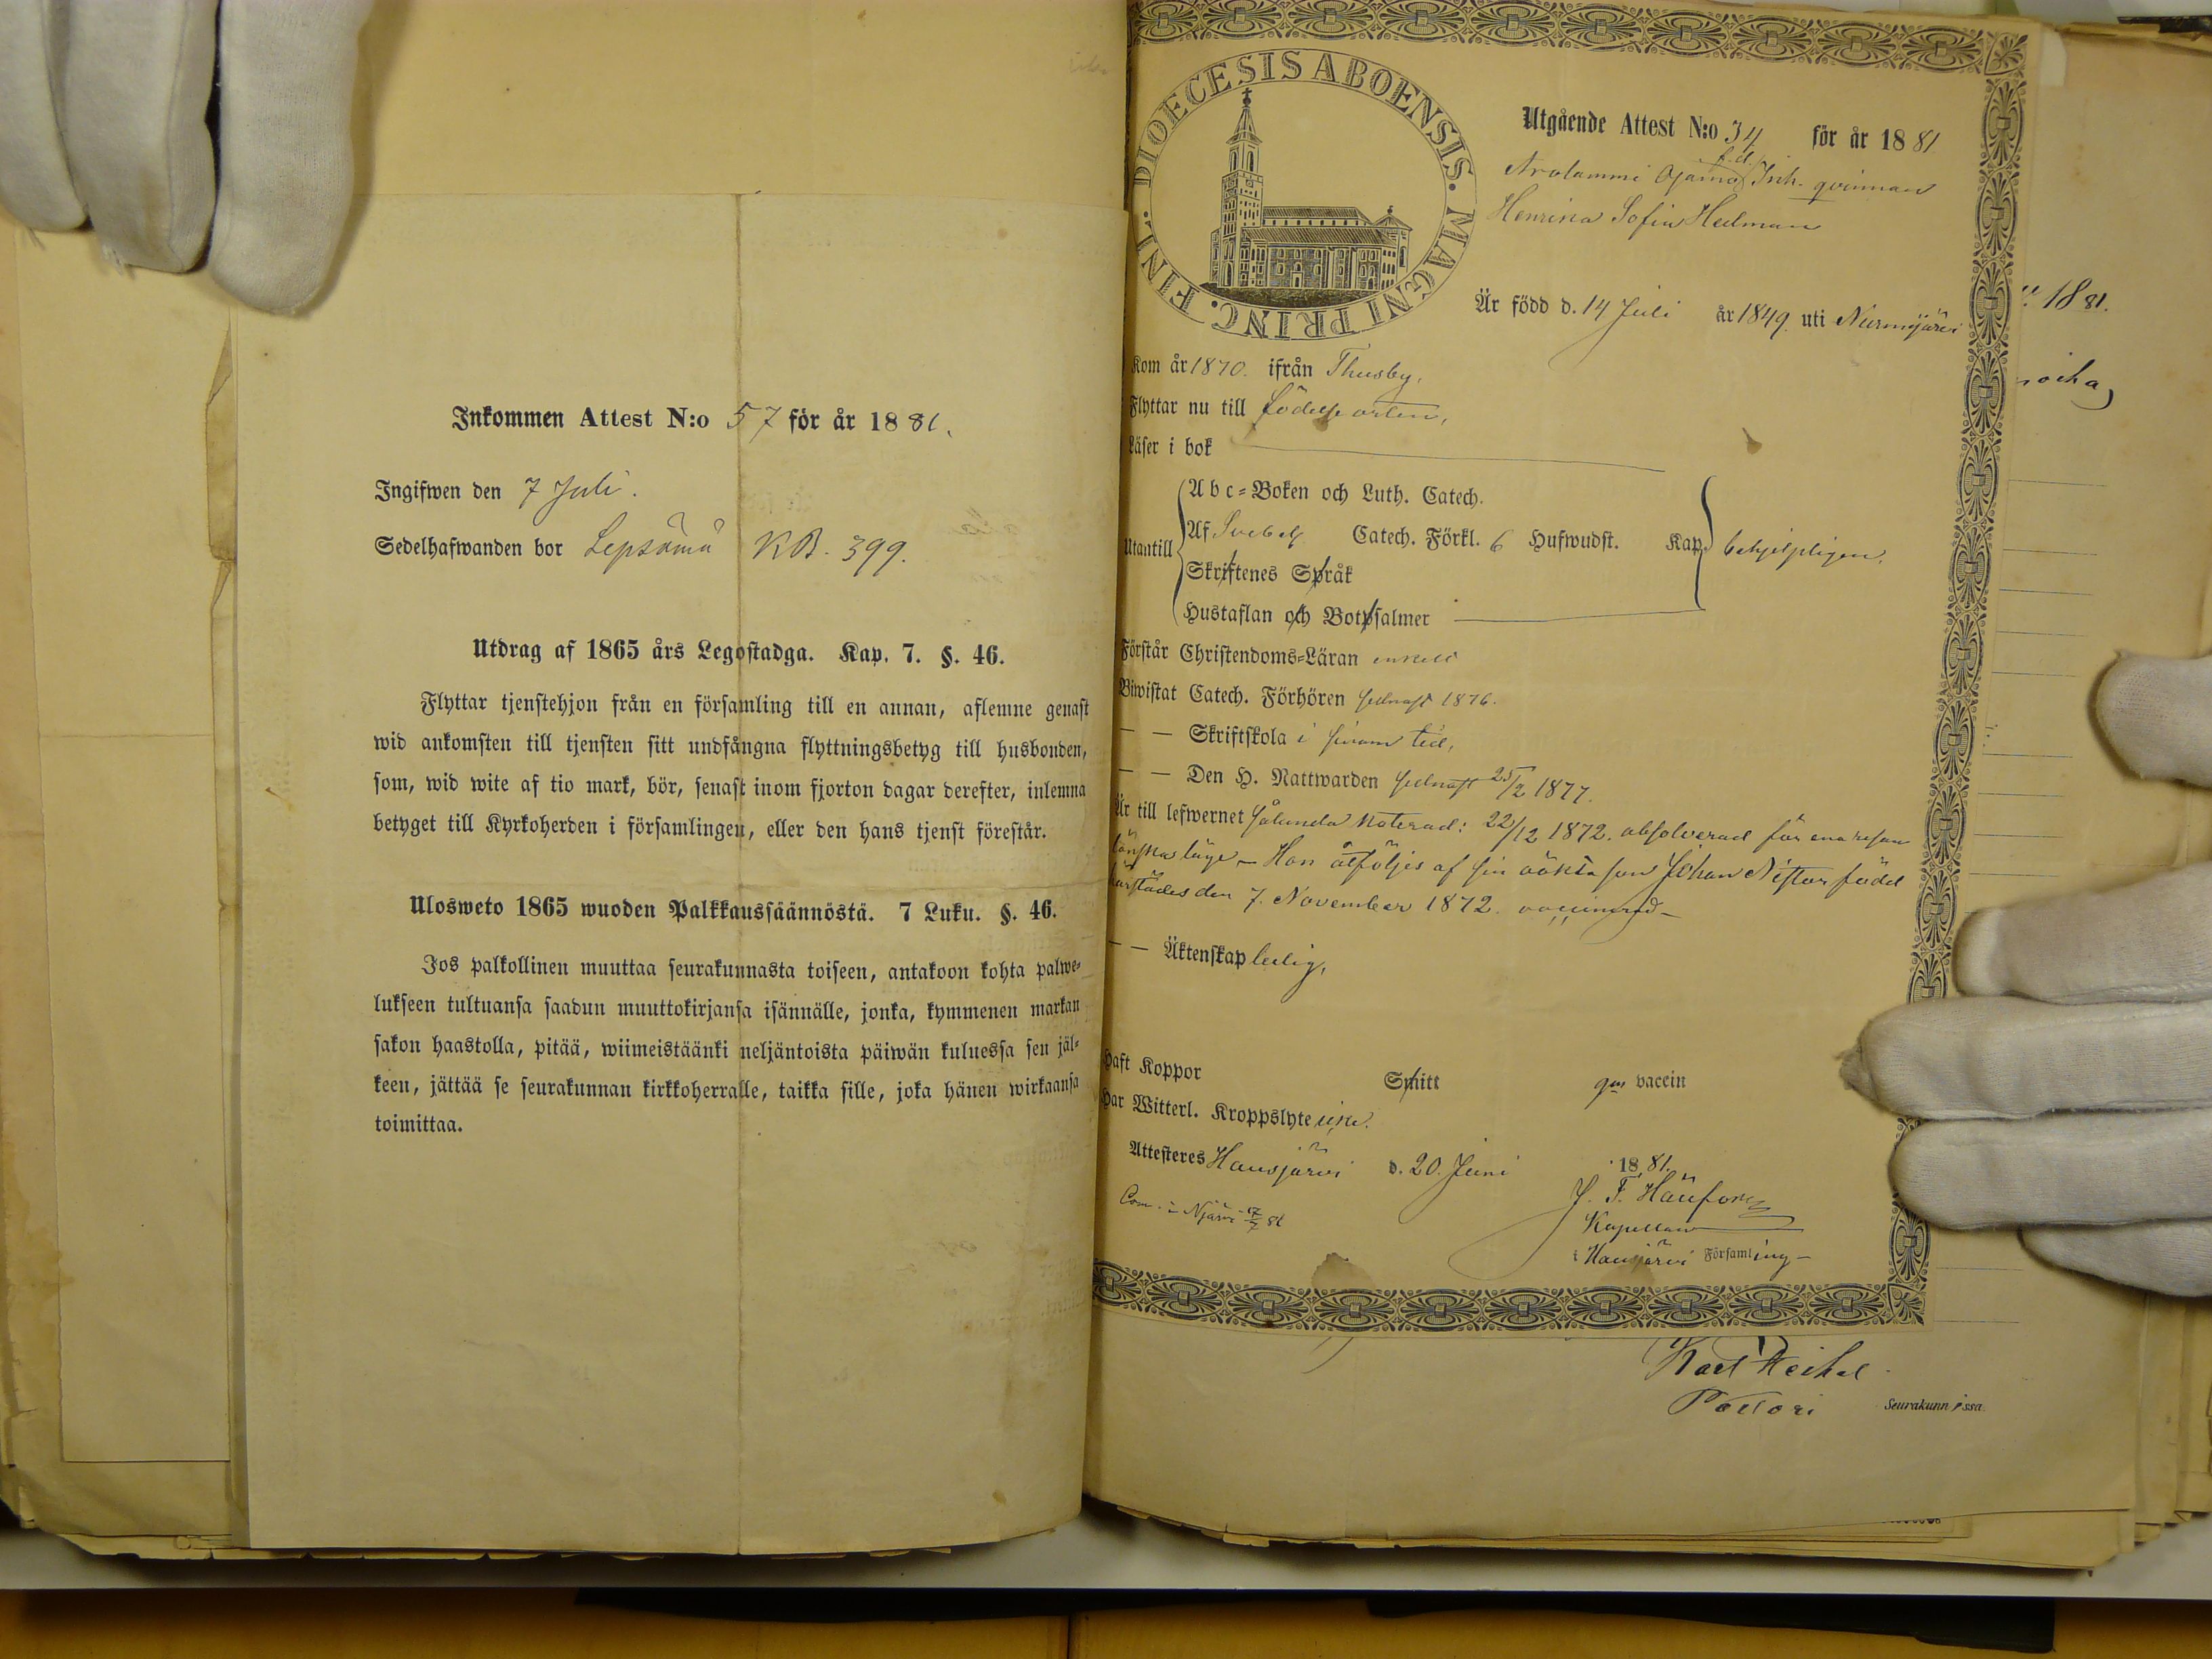 Inkommen Attest N:o 57 för år 1881.
Ingifwen den 7 Juli.
Sedelhafwanden bor Lepsämä KB. 399.
Utdrag af 1865 års Legostadga. Kap. 7. §. 46.
Flyttar tjenstehjon från en församling till en annan, aflemne genast
wid ankomsten till tjensten sitt undfångna flyttningsbetyg till husbonden,
som, wid wite af tio mark, bör, senast inom fjorton dagar derefter, inlemna
betyget till Kyrkoherden i församlingen, eller den hans tjenst förestår.
Ulosweto 1865 wuoden Palkkaussäännöstä. 7 Luku. §. 46.
Jos palkollinen muuttaa seurakunnasta toiseen, antakoon kohta palwe-
lukseen tultuansa saadun muuttokirjansa isännälle, jonka, kymmenen markan
sakon haastolla, pitää, wiimeistäänki neljäntoista päiwän kuluessa sen jäl-
keen, jättää se seurakunnan kirkkoherralle, taikka sille, joka hänen wirkaansa
toimittaa.
DIOECESIS ABOENSIS. MAGNI PRINC. FINL.
Utgående Attest N:o 34 för år 1881
f.d.
Arolammi Ojamo Inh. qvinnan
Henrika Sofia Hedman
Är född d. 14 Juli år 1849. uti Nurmijärvi
Kom år 1870. ifrån Thusby.
Flyttar nu till födelseorten,
Läser i bok
Utantill
Abc-Boken och Luth. Catech.
Af Svebel. Catech. Förkl. 6 Hufwudst. Kap. behjelpligen.
Skriftenes Språk
Hustaflan och Botpsalmer
Förstår Christendoms-Läran enkelt
Biwistat Catech. Förhören sednast 1876.
— — Skriftskola i sinom tid,
— — Den H. Nattwarden sednast 25/2 1877.
Är till lefwernet sålunda noterad: 22/12 1872. absolverad för ena resan
lönskaläge — Hon åtföljes af sin oäkta son Johan Nistor född
härstädes den 7. November 1872. vaccinerad —
— — Äktenskap ledig,
Haft Koppor Smitt gm vaccin
Har Witterl. Kroppslyte icke.
Attesteres Hausjärvi d. 20. Juni 1881.
J. F. Hänfors
Kapellan
i Hausjärvi Församling —
Com. i Njärvi 7/7 81
1881.
Karl Heikel
Pastori Seurakunnissa.